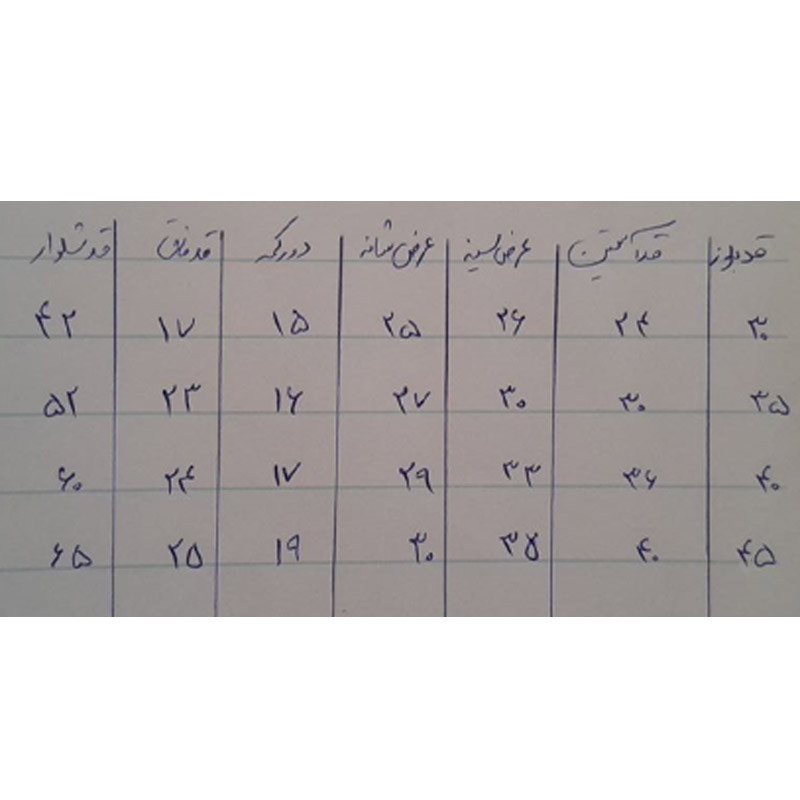 قد بلوز قد آستین عرض سینه عرض شانه دور کمر قد فاق قد شلوار
۳۰ ۲۴ ۲۶ ۲۵ ۱۵ ۱۷ ۴۲
۳۵ ۳۰ ۳۰ ۲۷ ۱۶ ۲۳ ۵۲
۴۰ ۳۶ ۳۳ ۲۹ ۱۷ ۲۴ ۶۰
۴۵ ۴۰ ۳۵ ۳۰ ۱۹ ۲۵ ۶۵